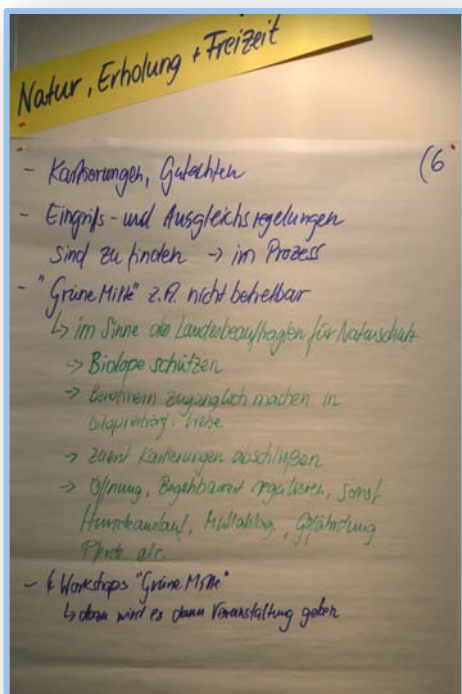 Natur, Erholung + Freizeit
(6
- Kartierungen, Gutachten
- Eingriffs- und Ausgleichsregelungen
sind zu finden → im Prozess
- "Grüne Mitte" z.A. nicht
↳ im Sinne des Landesbeauftragten für Naturschutz
→ Biotope schützen
→ zugänglich machen in
→ zuerst Kartierungen abschließen
→ Öffnung, Begehbarkeit regulieren, sonst
Hundeauslauf, Müllablag., Gefährdung
etc.
- Workshops "Grüne Mitte"
↳ dazu wird es dann Veranstaltung geben